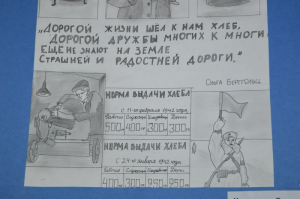 „ДОРОГОЙ ЖИЗНИ ШЁЛ К НАМ ХЛЕБ,
ДОРОГОЙ ДРУЖБЫ МНОГИХ К МНОГИМ
ЕЩЁ НЕ ЗНАЮТ НА ЗЕМЛЕ
СТРАШНЕЙ И РАДОСТНЕЙ ДОРОГИ."
Ольга Берггольц
НОРМА ВЫДАЧИ ХЛЕБА
С 11 февраля 1942 года
Рабочие Служащие Иждивенцы Дети
500 400 300 300
НОРМА ВЫДАЧИ ХЛЕБА
С 24 января 1942 года
Рабочие Служащие Иждивенцы Дети
400 300 250 250